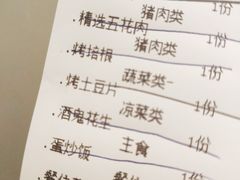 猪肉类 1份
·精选五花肉
猪肉类 1份
·烤培根
蔬菜类 1份
·烤土豆片
凉菜类 1份
·酒鬼花生
主食 1份
·蛋炒饭